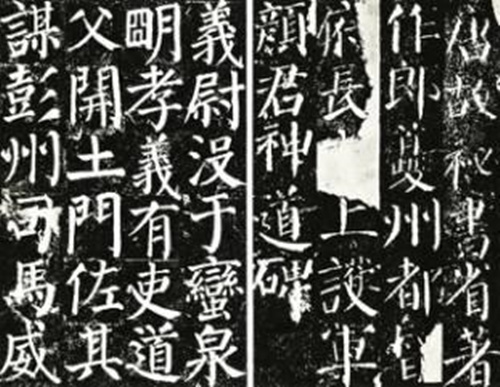 唐故秘書省著
作郎夔州都督
府長上護軍
顏君神道碑
義尉没于蠻泉
朙孝義有吏道
父開土門佐其
謀彭州司馬威